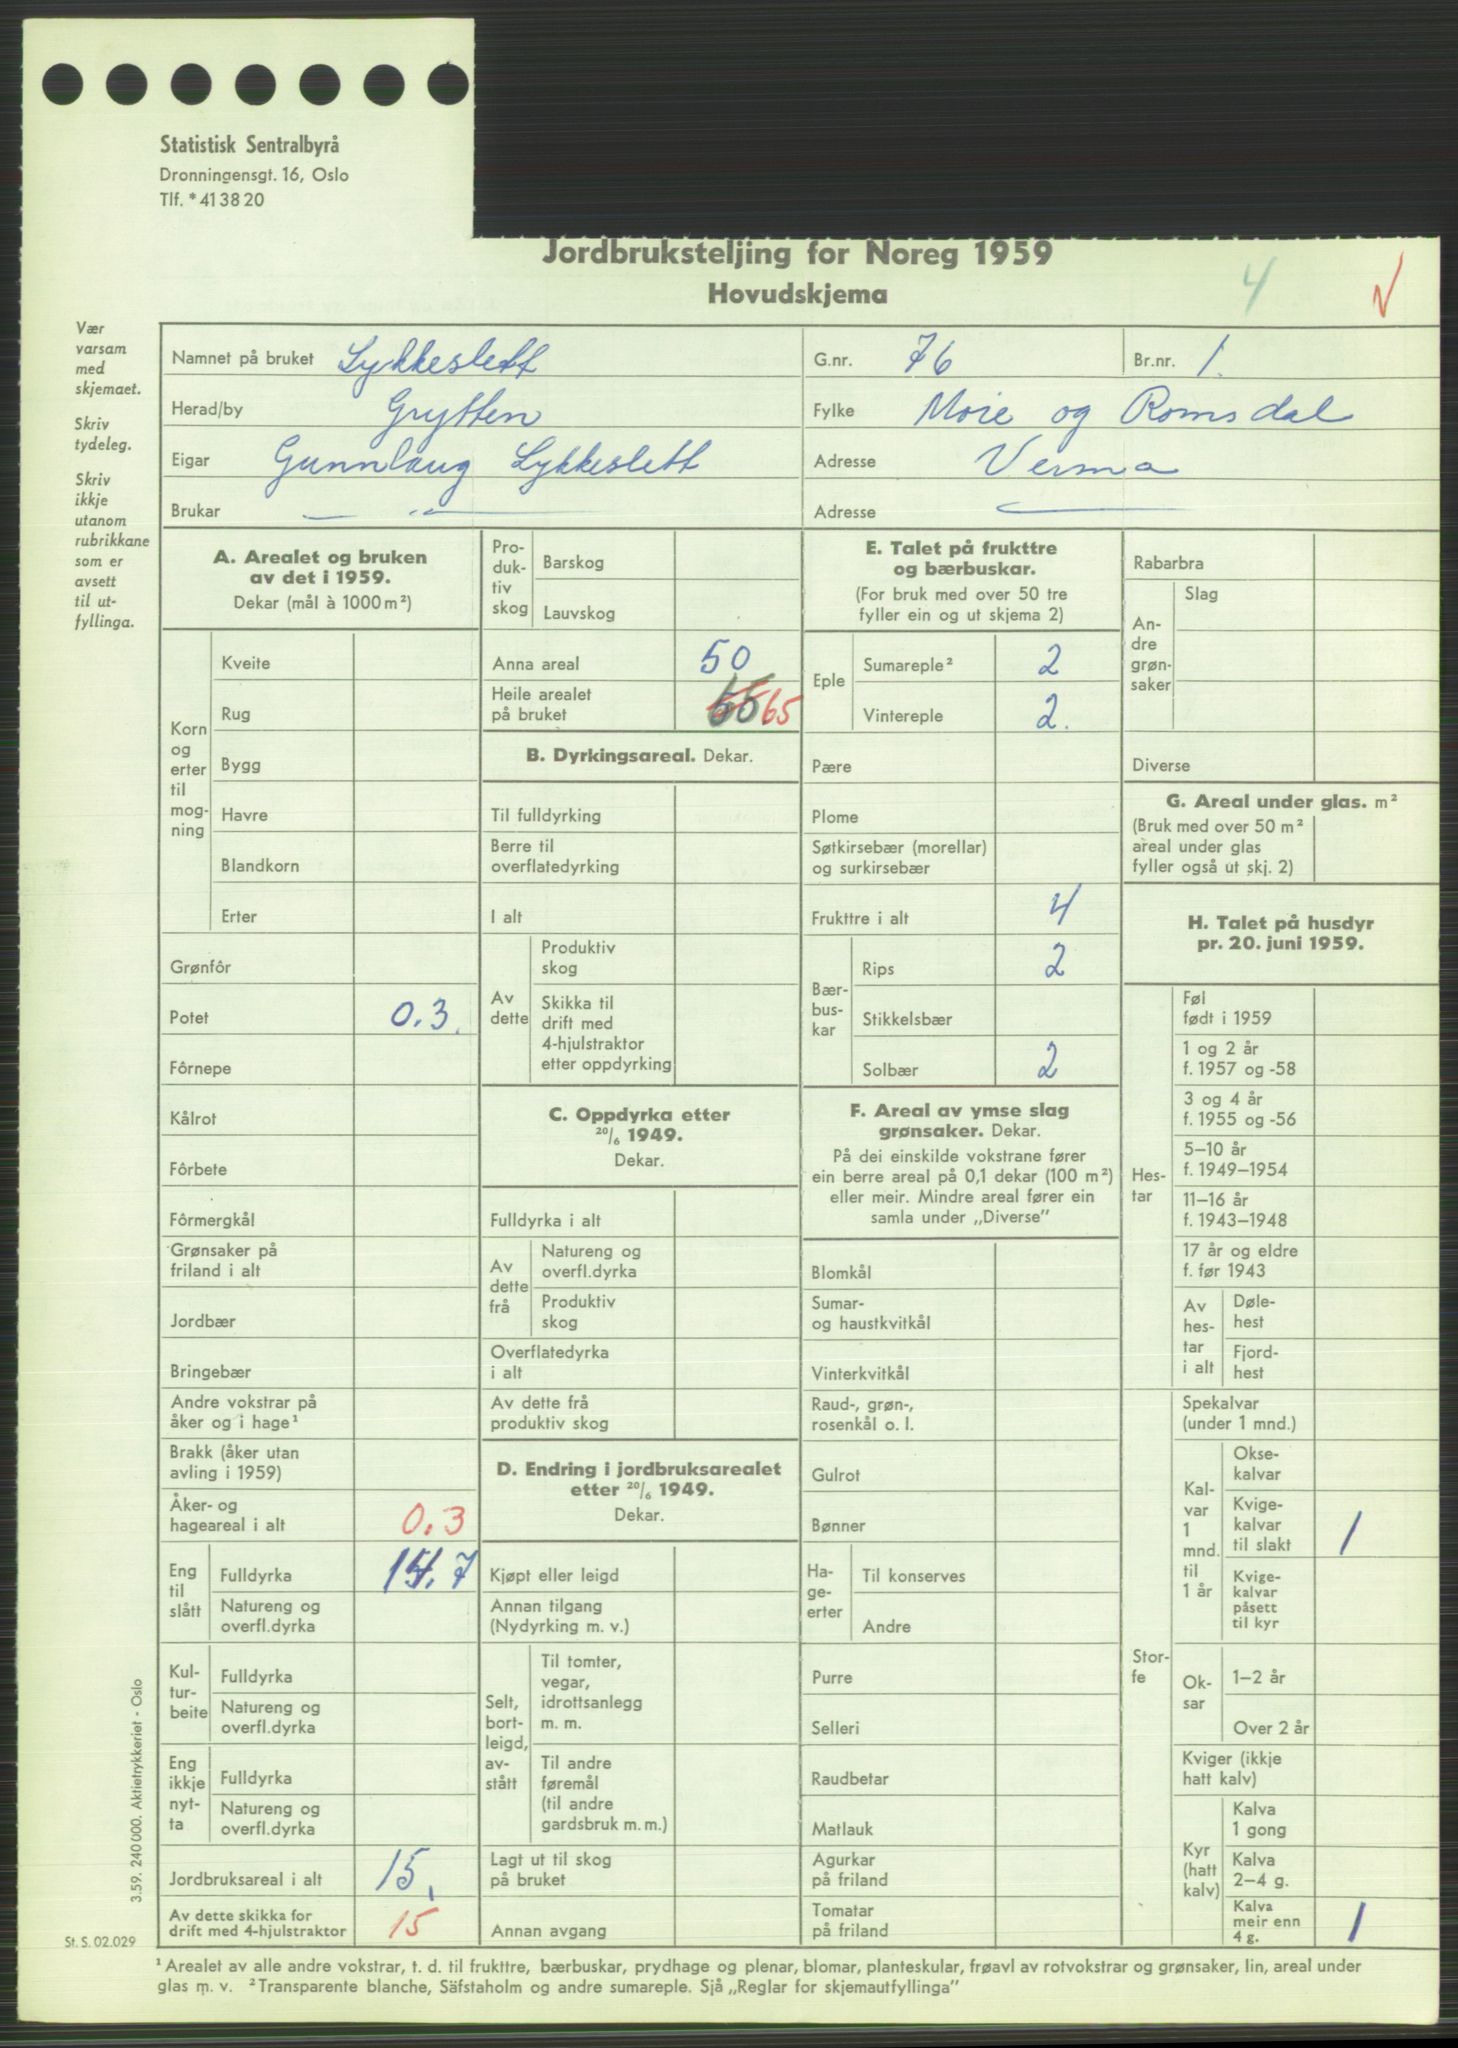 Statistisk Sentralbyrå
Dronningensgt. 16, Oslo
Tlf. *41 38 20
Jordbruksteljing for Noreg 1959
Hovudskjema
4
Vær
varsam
med
skjemaet.
Skriv
tydeleg.
Skriv
ikkje
utanom
rubrikkane
som er
avsett
til ut-
fyllinga.
Namnet på bruket Lykkeslett
G.nr. 76
Br.nr. 1.
Herad/by Grytten
Fylke Møre og Romsdal
Eigar Gunnlaug Lykkeslett
Adresse Verma
Brukar — " —
Adresse —
A. Arealet og bruken
av det i 1959.
Dekar (mål à 1000 m²)
Korn
og
erter
til
mog-
ning
Kveite
Rug
Bygg
Havre
Blandkorn
Erter
Grønfôr
Potet 0.3.
Fôrnepe
Kålrot
Fôrbete
Fôrmergkål
Grønsaker på
friland i alt
Jordbær
Bringebær
Andre vokstrar på
åker og i hage¹
Brakk (åker utan
avling i 1959)
Åker- og
hageareal i alt 0.3
Eng
til
slått
Fulldyrka 14.7
Natureng og
overfl.dyrka
Kul-
tur-
beite
Fulldyrka
Natureng og
overfl.dyrka
Eng
ikkje
nyt-
ta
Fulldyrka
Natureng og
overfl.dyrka
Jordbruksareal i alt 15.
Av dette skikka for
drift med 4-hjulstraktor 15
Pro-
duk-
tiv
skog
Barskog
Lauvskog
Anna areal 50
Heile arealet
på bruket 65
B. Dyrkingsareal. Dekar.
Til fulldyrking
Berre til
overflatedyrking
I alt
Av
dette
Produktiv
skog
Skikka til
drift med
4-hjulstraktor
etter oppdyrking
C. Oppdyrka etter
20/6 1949.
Dekar.
Fulldyrka i alt
Av
dette
frå
Natureng og
overfl.dyrka
Produktiv
skog
Overflatedyrka
i alt
Av dette frå
produktiv skog
D. Endring i jordbruksarealet
etter 20/6 1949.
Dekar.
Kjøpt eller leigd
Annan tilgang
(Nydyrking m. v.)
Selt,
bort-
leigd,
av-
stått
Til tomter,
vegar,
idrottsanlegg
m. m.
Til andre
føremål
(til andre
gardsbruk m. m.)
Lagt ut til skog
på bruket
Annan avgang
E. Talet på frukttre
og bærbuskar.
(For bruk med over 50 tre
fyller ein og ut skjema 2)
Eple
Sumareple² 2
Vintereple 2.
Pære
Plome
Søtkirsebær (morellar)
og surkirsebær
Frukttre i alt 4
Bær-
bus-
kar
Rips 2
Stikkelsbær
Solbær 2
F. Areal av ymse slag
grønsaker. Dekar.
På dei einskilde vokstrane fører
ein berre areal på 0,1 dekar (100 m²)
eller meir. Mindre areal fører ein
samla under „Diverse”
Blomkål
Sumar-
og haustkvitkål
Vinterkvitkål
Raud-, grøn-,
rosenkål o. l.
Gulrot
Bønner
Ha-
ge-
erter
Til konserves
Andre
Purre
Selleri
Raudbetar
Matlauk
Agurkar
på friland
Tomatar
på friland
Rabarbra
An-
dre
grøn-
saker
Slag
Diverse
G. Areal under glas. m²
(Bruk med over 50 m²
areal under glas
fyller også ut skj. 2)
H. Talet på husdyr
pr. 20. juni 1959.
Hes-
tar
Føl
født i 1959
1 og 2 år
f. 1957 og -58
3 og 4 år
f. 1955 og -56
5–10 år
f. 1949–1954
11–16 år
f. 1943–1948
17 år og eldre
f. før 1943
Av
hes-
tar
i alt
Døle-
hest
Fjord-
hest
Stor-
fe
Spekalvar
(under 1 mnd.)
Kal-
var
1
mnd.
til
1 år
Okse-
kalvar
Kvige-
kalvar
til slakt 1
Kvige-
kalvar
påsett
til kyr
Ok-
sar
1–2 år
Over 2 år
Kviger (ikkje
hatt kalv)
Kyr
(hatt
kalv)
Kalva
1 gong
Kalva
2–4 g.
Kalva
meir enn
4 g. 1
3.59. 240 000. Aktietrykkeriet - Oslo
St. S. 02.029
¹ Arealet av alle andre vokstrar, t. d. til frukttre, bærbuskar, prydhage og plenar, blomar, planteskular, frøavl av rotvokstrar og grønsaker, lin, areal under
glas m. v. ² Transparente blanche, Säfstaholm og andre sumareple. Sjå „Reglar for skjemautfyllinga”